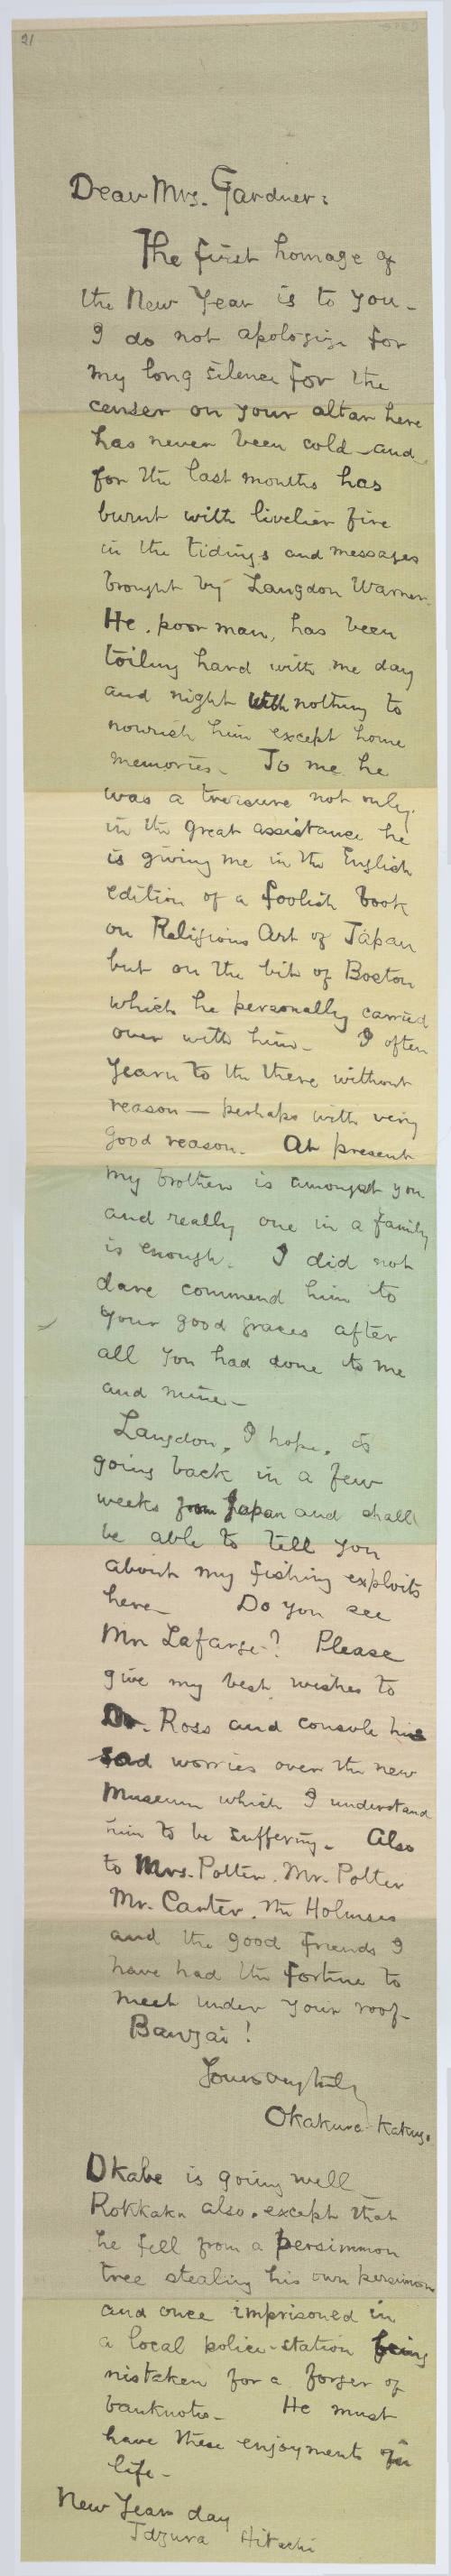 21
Dear Mrs. Gardner:
The first homage of
the New Year is to you -
I do not apologize for
my long silence for the
censer on your altar here
has never been cold - and
for the last months has
burnt with livelier fire
in the tidings and messages
brought by Langdon Warner.
He, poor man, has been
toiling hard with me day
and night with nothing to
nourish him except home
memories - To me he
was a treasure not only
in the great assistance he
is giving me in the English
edition of a foolish book
on Religious Art of Japan
but on the bit of Boston
which he personally carried
over with him - I often
yearn to the there without
reason — perhaps with very
good reason. At present
my brother is amongst you
and really one in a family
is enough. I did not
dare commend him to
your good graces after
all you had done to me
and mine -
Langdon, I hope, is
going back in a few
weeks from Japan and shall
be able to tell you
about my fishing exploits
here - Do you see
Mr Lafarge? Please
give my best wishes to
Dr. Ross and console his
sad worries over the new
Museum which I understand
him to be suffering - Also
to Mrs. Potter, Mr. Potter
Mr. Carter, the Holmses
and the good friends I
have had the fortune to
meet under your roof -
Banzai!
Yours very truly
Okakura-Kakuzo
Okabe is going well -
Rokkaku also, except that
he fell from a persimmon
tree stealing his own persimmon
and once imprisoned in
a local police-station being
mistaken for a forger of
banknotes - He must
have these enjoyments in
life -
New Years day
Idzura Hitachi